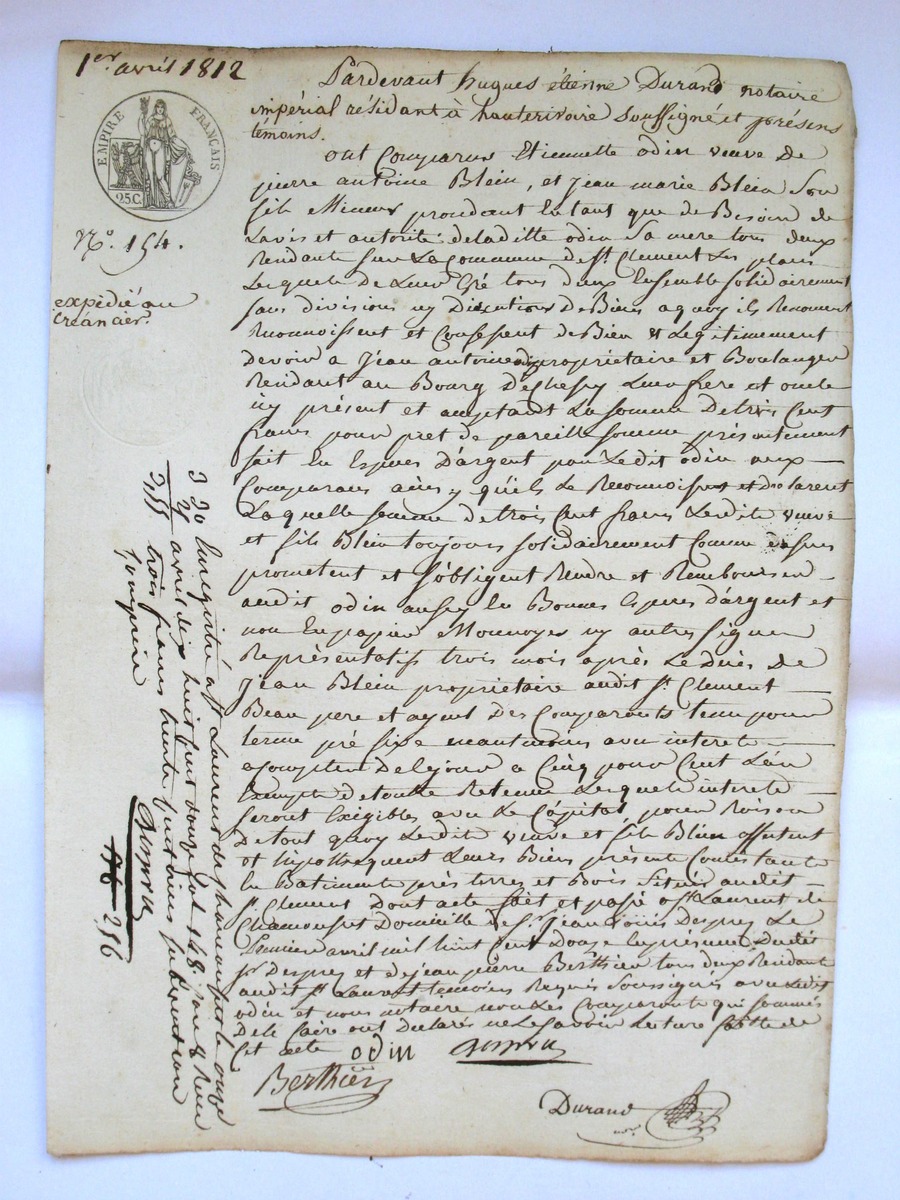 1er avril 1812
EMPIRE FRANÇAIS
25C.
No. 154.
expédié au
créancier.
Pardevant hugues étienne Durand notaire
impérial résidant à hauterivoire soussigné et présens
témoins.
ont Comparus Etiennette odin veuve de
pierre antoine Blein, et Jean marie Blein Son
fils Mineur procédant En tant que de Besoin de
Lavis et autorité deladitte odin Sa mere tous deux
Résidants sur La Commune de St. Clement Les places
Lesquels de Leur Gré tous deux Ensemble solidairement
sans division ny Discution de Biens a quoy ils Renoncent
Reconnoissent et Confessent de Bien & Légitimement
Devoir a Jean antoine odin propriétaire et Boulanger
Résidant au Bourg De Chessy Leur frere et oncle
icy présent et acceptant La somme De trois Cent
francs pour pret de pareille Somme présentement
fait En Espèces D'argent par Ledit odin aux
Comparans ainsy qu'ils Le Reconnoissent et Déclarent
Laquelle somme de trois Cent francs Lesdits veuve
et fils Blein toujours solidairement Comme dessus
promettent et s'obligent Rendre et Rembourser
audit odin aussy En Bonnes Espèces D'argent et
non En papier Monnoyes ny autres Signes
Représentatifs trois mois après Le décès de
Jean Blein propriétaire audit St. Clement
Beau pere et ayeul Des Comparants tems pour
terme préfixe néantmoins avec interets
acompter De Ce jour a Cinq pour Cent L'an
Exempts de toutte Retenue Lesquels interets
seront Exigibles avec Le Capital, pour Raison
De tout quoy Lesdits veuve et fils Blein affectent
et hypothequent Leurs Biens présents Consistants
En Batiments près terres et Bois Situés audit
St. Clement Dont acte fait et passé a St. Laurent de
Chamousset Domicille de Sr. Jean Louis Desprez Le
Premier avril mil huit Cent Douze En présence Dudit
Sr. Desprez et de Jean pierre Berthier tous deux Résidants
audit St. Laurent temoins Requis Soussignés avec Ledit
odin et nous notaire non Les Comparants qui sommés
De Le faire ont Déclarés ne Le Savoir Lecture faitte de
Cet acte odin
Berthier
Durand
3 30 Enregistré a St. Laurent de chamousset le onze
25 avril dix huit cent douze
3 55 trois francs trente
256